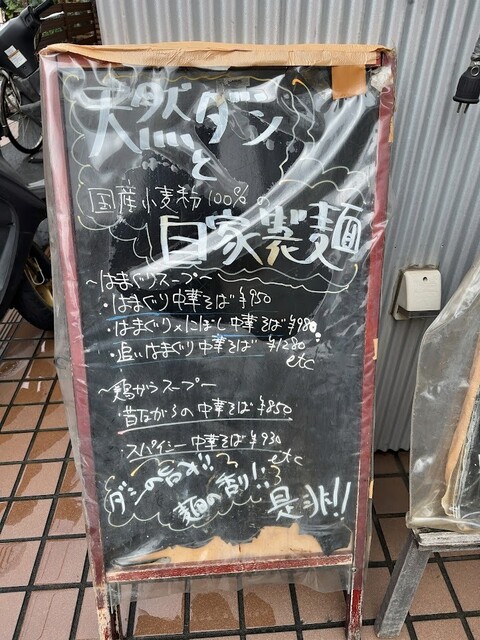 天然ダシ
と
国産小麦粉100%の
自家製麺
〜はまぐりスープ〜
・はまぐり中華そば ¥950
・はまぐり×にぼし中華そば ¥980
・追いはまぐり中華そば ¥1280
etc
〜鶏がらスープ〜
・昔ながらの中華そば ¥850
・スパイシー中華そば ¥930
etc
ダシの旨み!!
麺の香り!!
是非!!